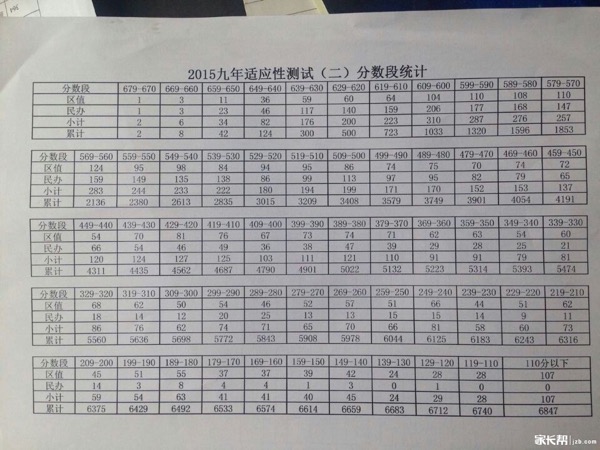 2015九年适应性测试（二）分数段统计
分数段 679-670 669-660 659-650 649-640 639-630 629-620 619-610 609-600 599-590 589-580 579-570
区值 1 3 11 36 59 60 64 104 110 108 110
民办 1 3 23 46 117 140 159 206 177 168 147
小计 2 6 34 82 176 200 223 310 287 276 257
累计 2 8 42 124 300 500 723 1033 1320 1596 1853
分数段 569-560 559-550 549-540 539-530 529-520 519-510 509-500 499-490 489-480 479-470 469-460 459-450
区值 124 95 98 84 94 95 86 74 75 70 74 72
民办 159 149 135 138 86 99 113 97 95 82 79 65
小计 283 244 233 222 180 194 199 171 170 152 153 137
累计 2136 2380 2613 2835 3015 3209 3408 3579 3749 3901 4054 4191
分数段 449-440 439-430 429-420 419-410 409-400 399-390 389-380 379-370 369-360 359-350 349-340 339-330
区值 54 70 81 76 67 73 74 71 62 63 54 60
民办 66 54 46 49 36 38 47 39 29 28 25 21
小计 120 124 127 125 103 111 121 110 91 91 79 81
累计 4311 4435 4562 4687 4790 4901 5022 5132 5223 5314 5393 5474
分数段 329-320 319-310 309-300 299-290 289-280 279-270 269-260 259-250 249-240 239-230 229-220 219-210
区值 68 62 50 54 46 52 57 51 66 44 51 62
民办 18 14 12 20 25 13 13 15 15 14 9 11
小计 86 76 62 74 71 65 70 66 81 58 60 73
累计 5560 5636 5698 5772 5843 5908 5978 6044 6125 6183 6243 6316
分数段 209-200 199-190 189-180 179-170 169-160 159-150 149-140 139-130 129-120 119-110 110分以下
区值 45 51 55 37 37 39 42 24 28 28 107
民办 14 3 8 4 4 1 3 0 1 0 0
小计 59 54 63 41 41 40 45 24 29 28 107
累计 6375 6429 6492 6533 6574 6614 6659 6683 6712 6740 6847
家长帮 jzb.com